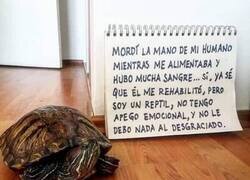 MORDÍ LA MANO DE MI HUMANO
MIENTRAS ME ALIMENTABA Y
HUBO MUCHA SANGRE... SÍ, YA SÉ
QUE ÉL ME REHABILITÓ, PERO
SOY UN REPTIL, NO TENGO
APEGO EMOCIONAL, Y NO LE
DEBO NADA AL DESGRACIADO.